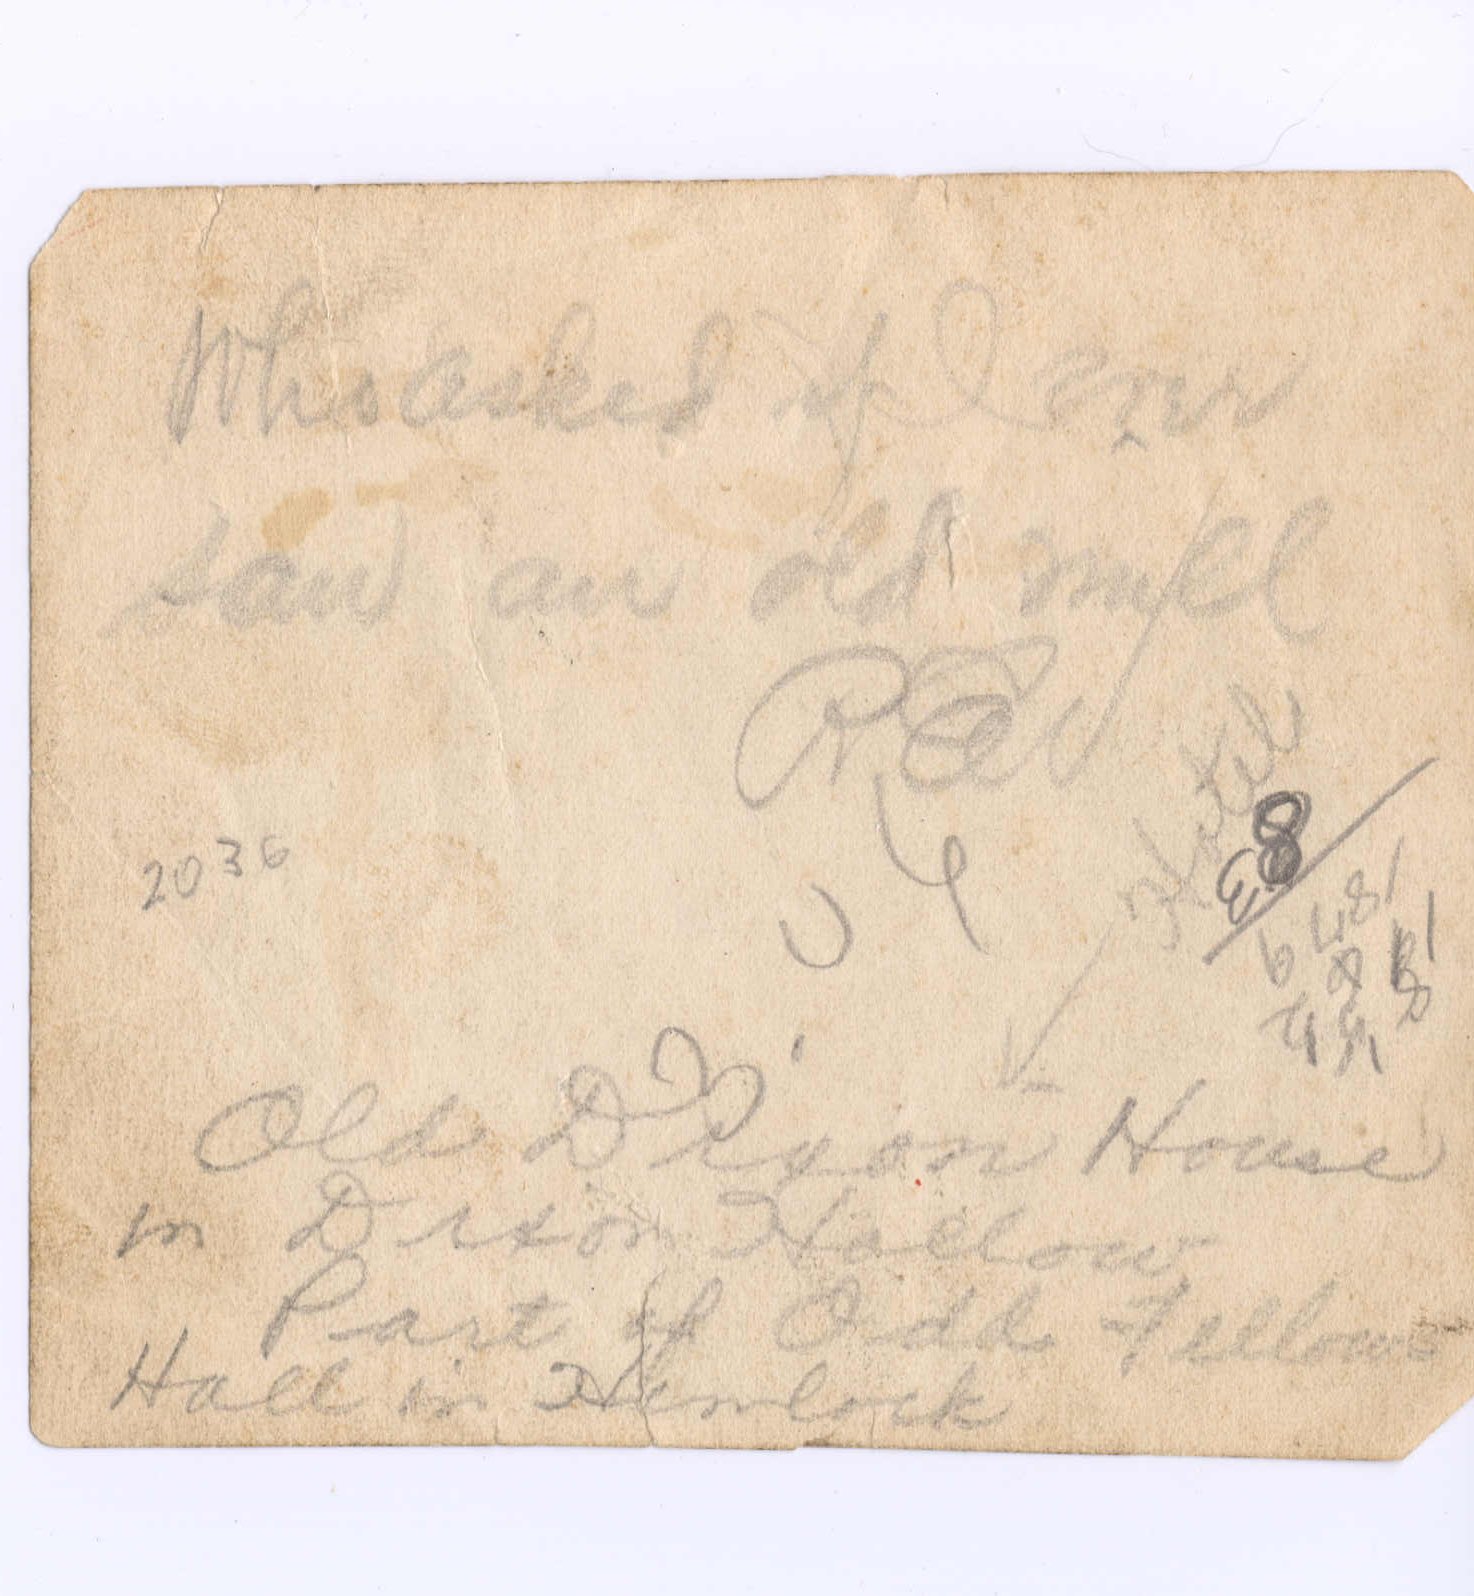 Who asked if I ever
saw an old mill
2036
Hotel
8
Old Dixon House
in Dixon Hollow
Part of Odd Fellows
Hall in Hemlock